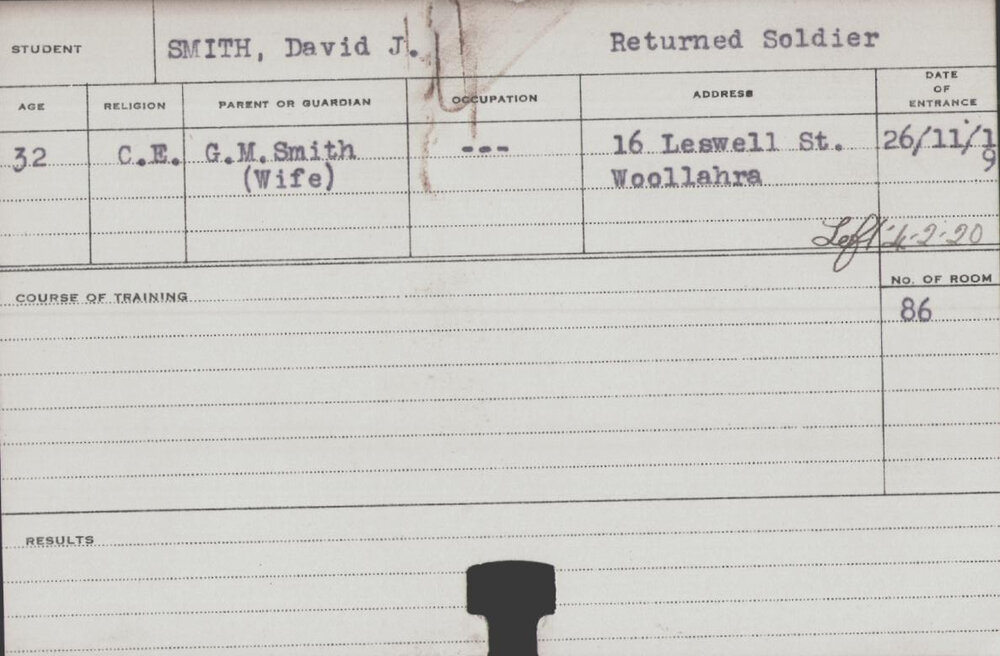 STUDENT SMITH, David J. Returned Soldier
AGE RELIGION PARENT OR GUARDIAN OCCUPATION ADDRESS DATE OF ENTRANCE
32 C.E. G.M.Smith --- 16 Leswell St. 26/11/19
(Wife) Woollahra
Left 4-2-20
COURSE OF TRAINING No. OF ROOM
86
RESULTS